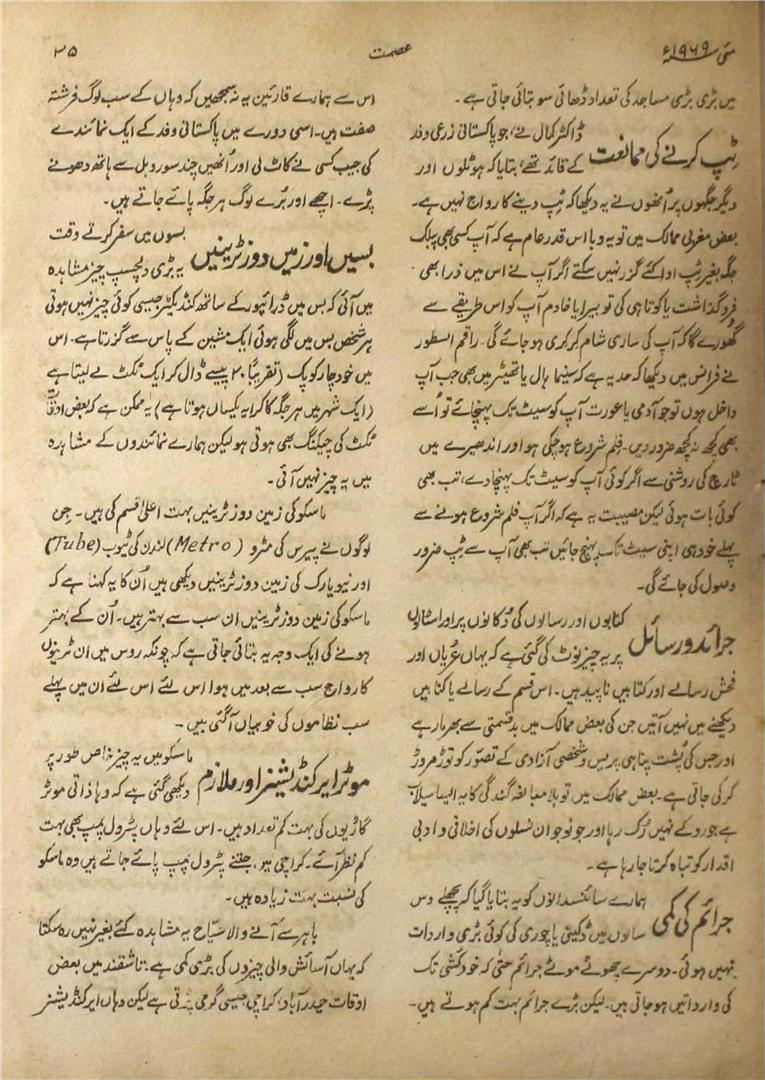 مئی ۱۹۶۹ء
عصمت
۳۵
میں بڑی بڑی مساجد کی تعداد ڈھائی سو بتائی جاتی ہے۔
ٹپ کرنے کی ممانعت
ڈاکٹر کمال نے، جو پاکستانی زرعی وفد
کے قائد تھے، بتایا کہ ہوٹلوں اور
دیگر جگہوں پر اُنھوں نے یہ دیکھا کہ ٹپ دینے کا رواج نہیں ہے۔
بعض مغربی ممالک میں تو یہ وبا اس قدر عام ہے کہ آپ کسی بھی پبلک
جگہ بغیر ٹپ ادا کئے گزر نہیں سکتے اگر آپ نے اس میں ذرا بھی
فروگذاشت یا کوتاہی کی تو بیرا یا خادم آپ کو اس طریقے سے
گھورے گا کہ آپ کی ساری شام کرکری ہو جائے گی۔ راقم السطور
نے فرانس میں دیکھا کہ حد یہ ہے کہ سنیما ہال یا تھیٹر میں بھی جب آپ
داخل ہوں تو جو آدمی یا عورت آپ کو سیٹ تک پہنچائے تو اُسے
بھی کچھ نہ کچھ ضرور دیں۔ فلم شروع ہو چکی ہو اور اندھیرے میں
ٹارچ کی روشنی سے اگر کوئی آپ کو سیٹ تک پہنچا دے، تب بھی
کوئی بات ہوئی لیکن مصیبت یہ ہے کہ اگر آپ فلم شروع ہونے سے
پہلے خود ہی اپنی سیٹ تک پہنچ جائیں تب بھی آپ سے ٹپ ضرور
وصول کی جائے گی۔
جرائد و رسائل
کتابوں اور رسالوں کی دُکانوں پر اور اسٹالوں
پر یہ چیز نوٹ کی گئی ہے کہ یہاں عُریاں اور
فحش رسالے اور کتابیں ناپید ہیں۔ اس قسم کے رسالے یا کتابیں
دیکھنے میں نہیں آتیں جن کی بعض ممالک میں بدقسمتی سے بھرمار ہے
اور جس کی پُشت پناہی پریس و شخصی آزادی کے تصوّر کو توڑ مروڑ
کر کی جاتی ہے۔ بعض ممالک میں تو بلا مبالغہ گندگی کا یہ ایسا سیلاب
ہے جو روکے نہیں رُک رہا اور جو نوجوان نسلوں کی اخلاقی و ادبی
اقدار کو تباہ کرتا جا رہا ہے۔
جرائم کی کمی
ہمارے سائنسدانوں کو یہ بتایا گیا کہ پچھلے دس
سالوں میں ڈکیتی یا چوری کی کوئی بڑی واردات
نہیں ہوئی۔ دوسرے چھوٹے موٹے جرائم حتٰی کہ خودکشی تک
کی وارداتیں ہو جاتی ہیں۔ لیکن بڑے جرائم بہت کم ہوتے ہیں۔
اس سے ہمارے قارئین یہ نہ سمجھیں کہ وہاں کے سب لوگ فرشتہ
صفت ہیں۔ اسی دورے میں پاکستانی وفد کے ایک نمائندے
کی جیب کسی نے کاٹ لی اور اُنھیں چند سو روبل سے ہاتھ دھونے
پڑے۔ اچھے اور بُرے لوگ ہر جگہ پائے جاتے ہیں۔
بسیں اور زمیں دوز ٹرینیں
بسوں میں سفر کرتے وقت
یہ بڑی دلچسپ چیز مشاہدہ
میں آئی کہ بس میں ڈرائیور کے ساتھ کنڈیکٹر جیسی کوئی چیز نہیں ہوتی
ہر شخص بس میں لگی ہوئی ایک مشین کے پاس سے گزرتا ہے۔ اس
میں خود چار کوپک (تقریباً ۲۰ پیسے) ڈال کر ایک ٹکٹ لے لیتا ہے
(ایک شہر میں ہر جگہ کا کرایہ یکساں ہوتا ہے) یہ ممکن ہے کہ بعض اوقات
ٹکٹ کی چیکنگ بھی ہوتی ہو لیکن ہمارے نمائندوں کے مشاہدہ
میں یہ چیز نہیں آئی۔
ماسکو کی زمین دوز ٹرینیں بہت اعلیٰ قسم کی ہیں۔ جن
لوگوں نے پیرس کی مٹرو (Metro) لندن کی ٹیوب (Tube)
اور نیویارک کی زمین دوز ٹرینیں دیکھی ہیں اُن کا یہ کہنا ہے کہ
ماسکو کی زمین دوز ٹرینیں ان سب سے بہتر ہیں۔ اُن کے بہتر
ہونے کی ایک وجہ یہ بتائی جاتی ہے کہ چونکہ روس میں ان ٹرینوں
کا رواج سب سے بعد میں ہوا اس لئے اس لئے ان میں پہلے
سب نظاموں کی خوبیاں آ گئی ہیں۔
موٹر ایرکنڈیشنر اور ملازم
ماسکو میں یہ چیز خاص طور پر
دیکھی گئی ہے کہ وہاں ذاتی موٹر
گاڑیوں کی بہت کم تعداد ہیں۔ اس لئے وہاں پٹرول پمپ بھی بہت
کم نظر آئے۔ کراچی میں، جتنے پٹرول پمپ پائے جاتے ہیں وہ ماسکو
کی نسبت بہت زیادہ ہیں۔
باہر سے آنے والا سیّاح یہ مشاہدہ کئے بغیر نہیں رہ سکتا
کہ یہاں آسائش والی چیزوں کی بڑی کمی ہے۔ تاشقند میں بعض
اوقات حیدرآباد، کراچی جیسی گرمی پڑتی ہے لیکن وہاں ایرکنڈیشنر